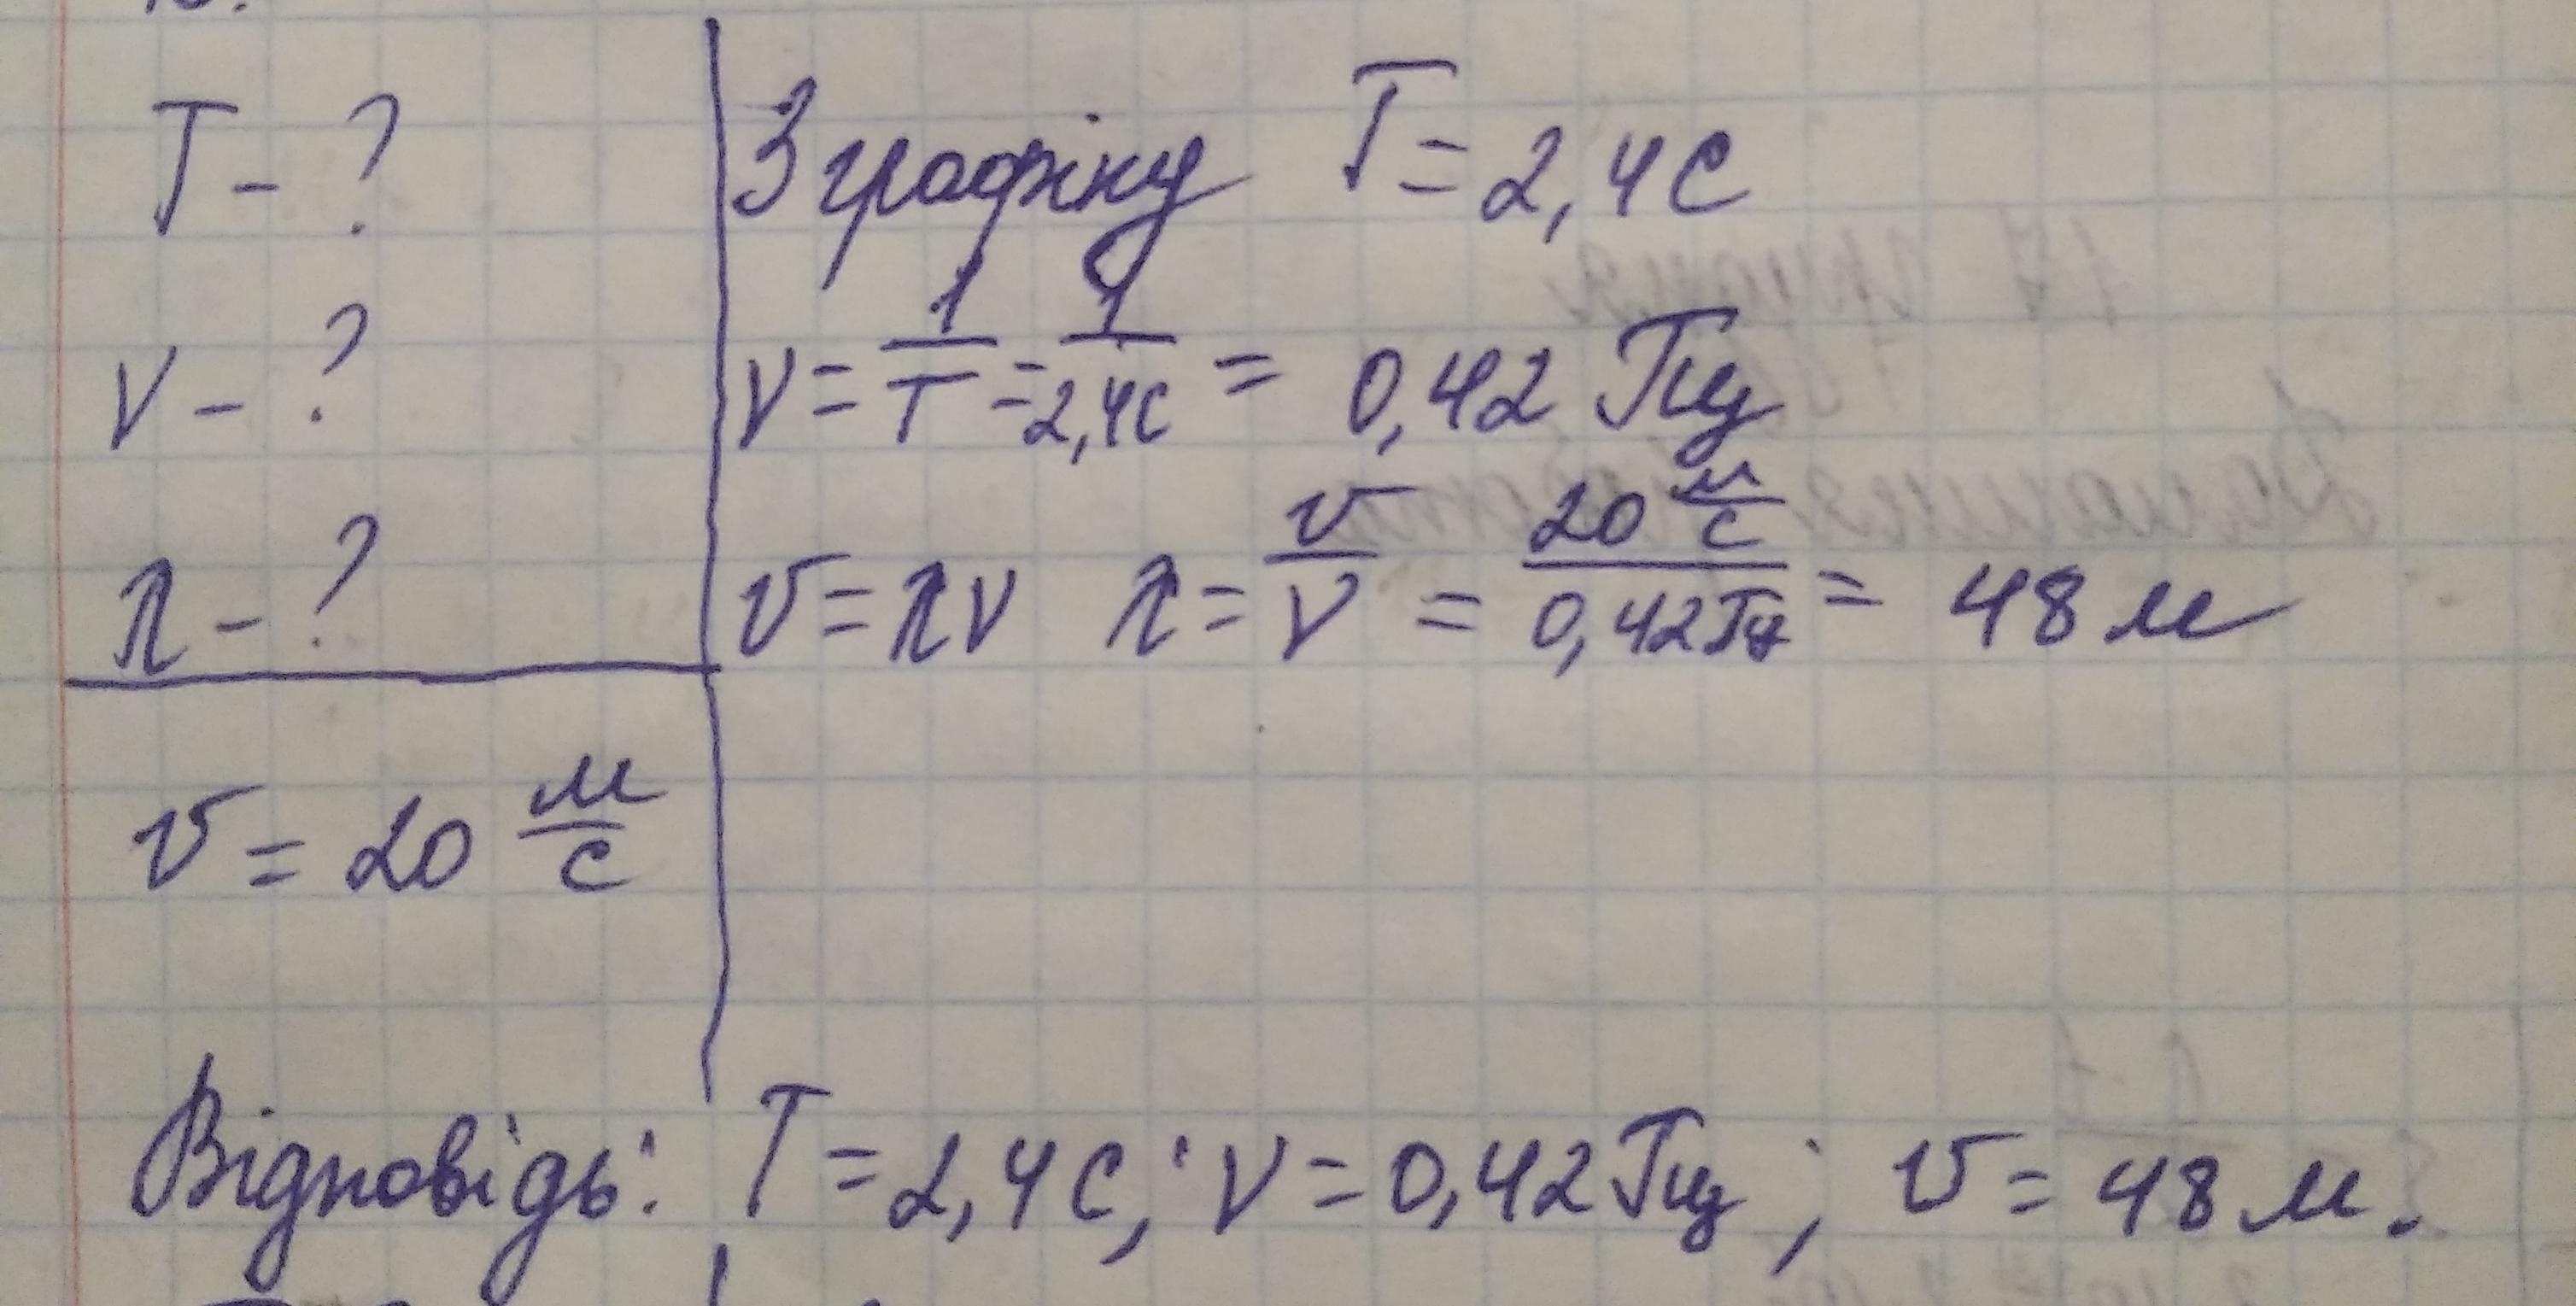 T - ?
ν - ?
λ - ?
v = 20 м/с
З графіку T = 2,4 с
ν = 1/T = 1/2,4с = 0,42 Гц
v = λν λ = v/ν = 20 м/с / 0,42Гц = 48 м
Відповідь: T = 2,4 с; ν = 0,42 Гц; v = 48 м.